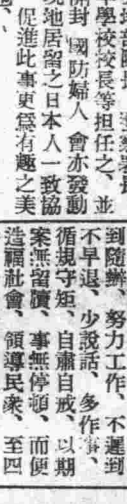 學校校長等担任之、並
開封國防婦人會亦發動
現地居留之日本人一致協
促進此事更爲有趣之美
到隨辦、努力工作、不遲到
不早退、少說話、多作事、
循規守矩、自肅自戒、以期
案無留牘、事無停頓、而便
造福社會、領導民衆、至四